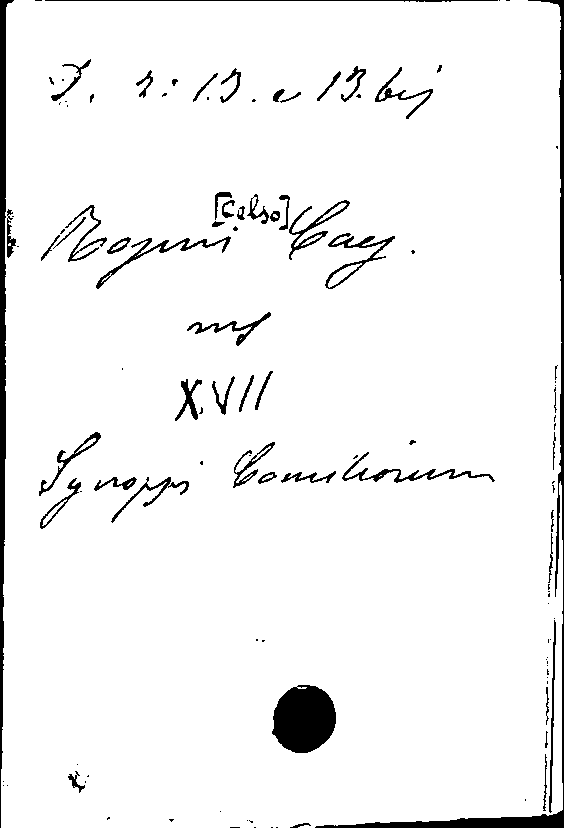 D. 2: 13. e 13. bis
Rogini [Celso] Cay.
ms
XVII
Synopsis Conciliorum